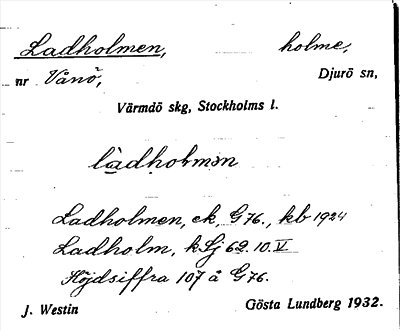 Ladholmen, holme,
nr Vånö, Djurö sn,
Värmdö skg, Stockholms l.
làdhoḷmən
Ladholmen, ek, G76., kb 1924
Ladholm, k Sj 62. 10. V
Höjdsiffra 107 å G76.
J. Westin Gösta Lundberg 1932.